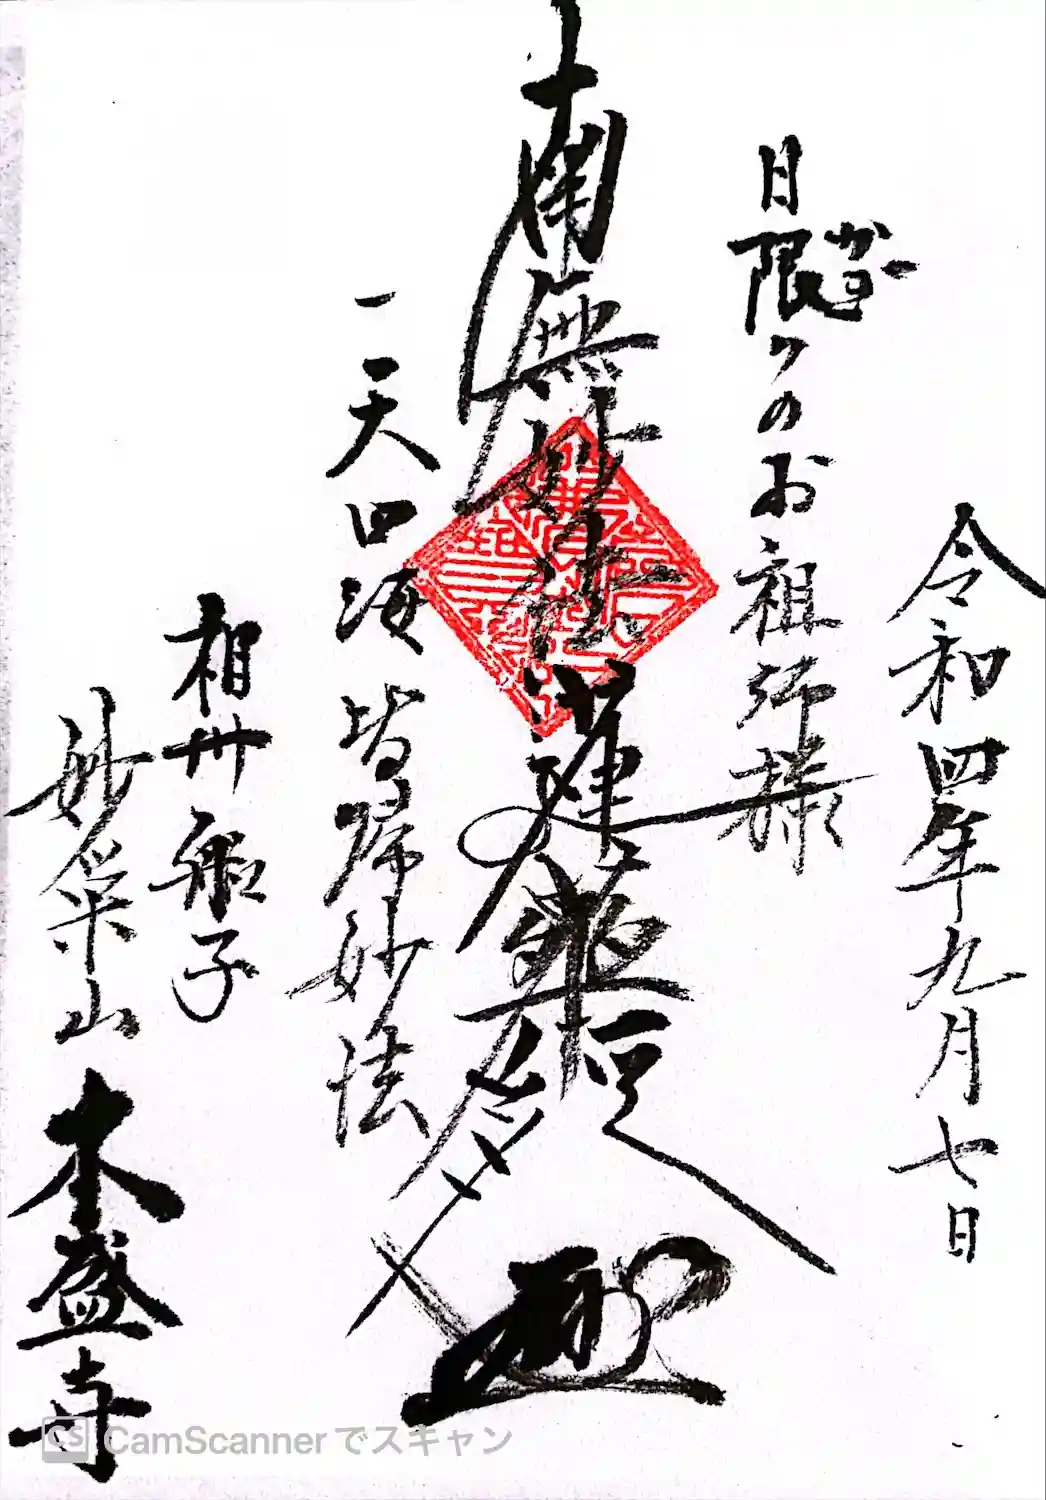 令和四年九月七日
日限りのお祖師様
南無妙法蓮華経
一天四海皆帰妙法
相州船子
妙栄山
本盛寺
CS CamScanner でスキャン